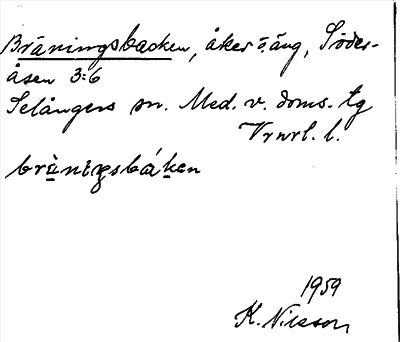 Bräningsbacken, åker o. äng, Söder-
åsen 3:6
Selångers sn. Med. v. doms. tg
Vrnrl. l.
brä̀niŋsbáken
1959
K. Nilsson